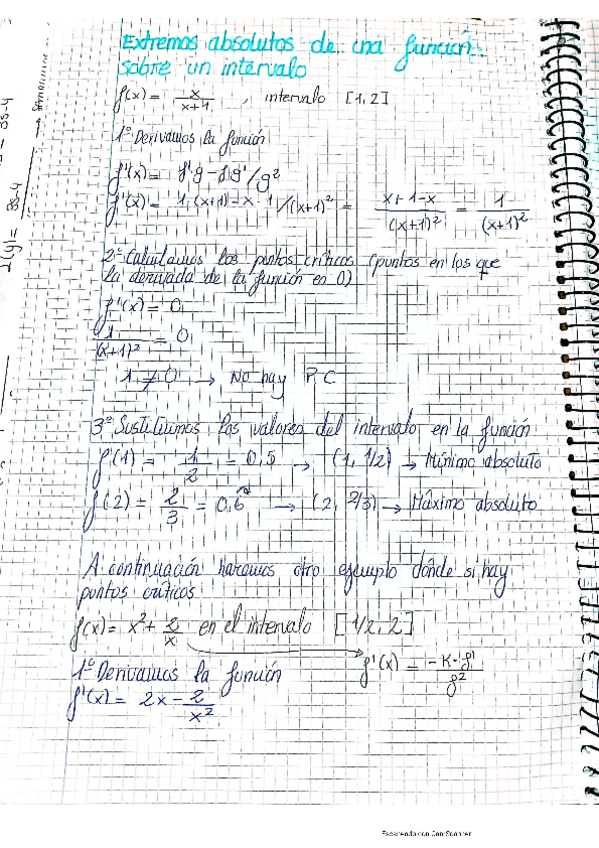 Extremos absolutos de una función
sobre un intervalo
f(x) = x/x+1 , intervalo [1,2]
1º Derivamos la función
f'(x) = f'g - f g'/g²
f'(x) = 1·(x+1) - x·1/(x+1)² = x+1-x/(x+1)² = 1/(x+1)²
2º Calculamos los puntos críticos (puntos en los que
la derivada de la función en 0)
f'(x) = 0
1/(x+1)² = 0
1 ≠ 0 → No hay P C
3º Sustituimos los valores del intervalo en la función
f(1) = 1/2 = 0,5 → (1, 1/2) → Mínimo absoluto
f(2) = 2/3 = 0,6 → (2, 2/3) → Máximo absoluto
A continuación haremos otro ejemplo donde si hay
puntos críticos
f(x) = x² + 2/x en el intervalo [1/2, 2]
1º Derivamos la función
f'(x) = -K·f'/f²
f'(x) = 2x - 2/x²
Escaneado con CamScanner